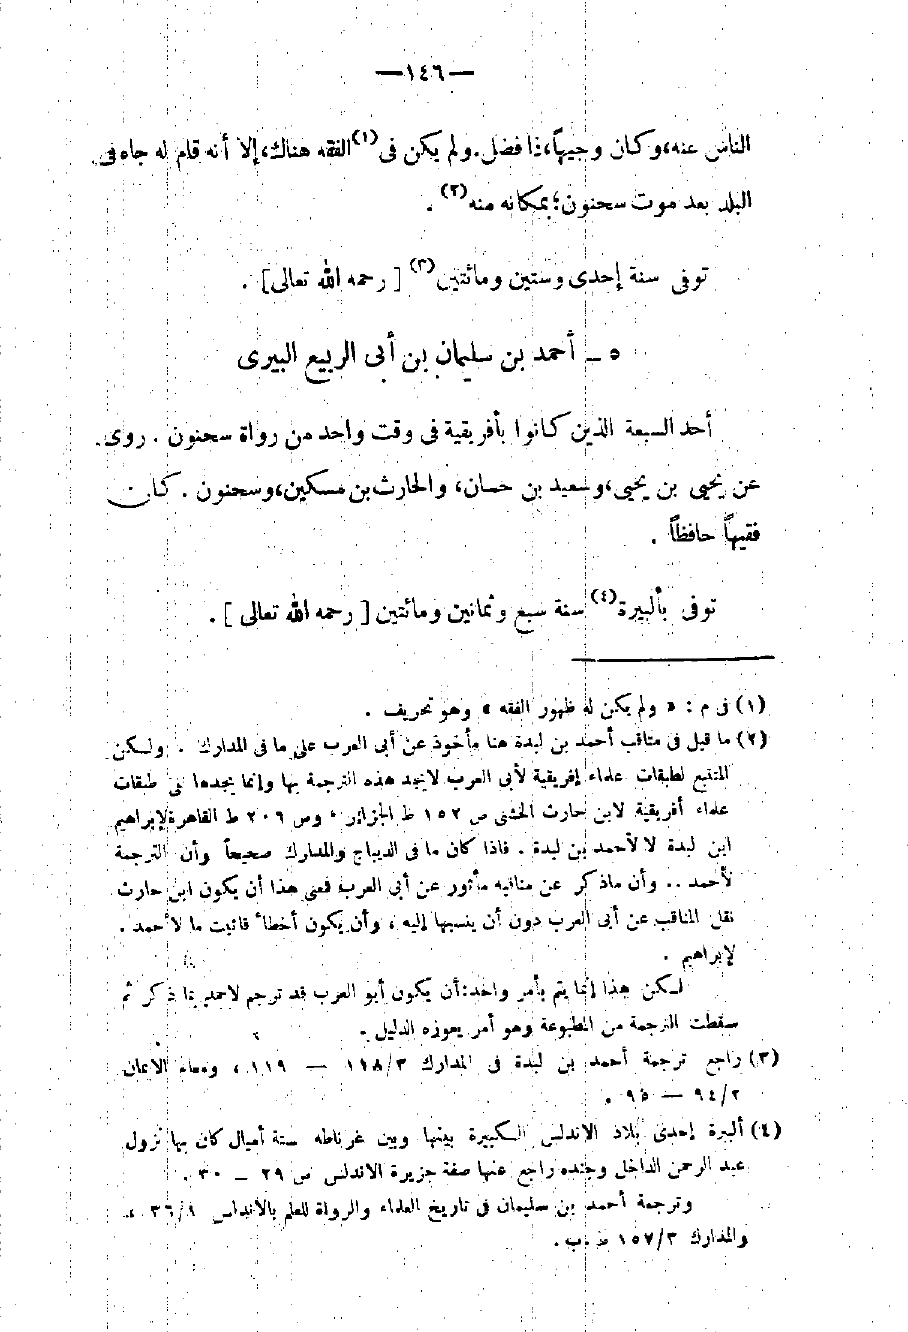 —١٤٦—
الناس عنه، وكان وجيهاً، ذا فضل. ولم يكن فى(١) الفقه هناك، إلا أنه قام له جاه فى
البلد بعد موت سحنون؛ بمكانه منه(٢) .
توفى سنة إحدى وستين ومائتين(٣) [ رحمه الله تعالى] .
٥ ــ أحمد بن سليمان بن أبى الربيع البيرى
أحد السبعة الذين كانوا بأفريقية فى وقت واحد من رواة سحنون . روى
عن يحيى بن يحيى، وسعيد بن حسان، والحارث بن مسكين، وسحنون . كان
فقيهاً حافظاً .
توفى بألبيرة(٤) سنة سبع وثمانين ومائتين [ رحمه الله تعالى ] .
(١) فى م : « ولم يكن له ظهور الفقه » وهو تحريف .
(٢) ما قيل فى مناقب أحمد بن لبدة هنا مأخوذ عن أبى العرب على ما فى المدارك . ولكن
المتتبع لطبقات علماء إفريقية لأبى العرب لايجد هذه الترجمة بها وإنما يجدها فى طبقات
علماء أفريقية لابن حارث الخشنى ص ١٥٢ ط الجزائر ، وص ٢٠٦ ط القاهرة لإبراهيم
ابن لبدة لا لأحمد بن لبدة . فاذا كان ما فى الديباج والمدارك صحيحاً وأن الترجمة
لأحمد .. وأن ماذكر عن مناقبه مأثور عن أبى العرب فمعنى هذا أن يكون ابن حارث
نقل المناقب عن أبى العرب دون أن ينسبها إليه ، وأن يكون أخطأ فأثبت ما لأحمد .
لإبراهيم .
لكن هذا إنما يتم بأمر واحد: أن يكون أبو العرب قد ترجم لاحمد بما ذكر ثم
سقطت الترجمة من المطبوعة وهو أمر يعوزه الدليل .
(٣) راجع ترجمة أحمد بن لبدة فى المدارك ١١٨/٣ — ١١٩ ، ومعالم الايمان
٩٤/٢ — ٩٥ .
(٤) ألبرة إحدى بلاد الاندلس الكبيرة بينها وبين غرناطه ستة أميال كان بها نزول
عبد الرحمن الداخل وجنده راجع عنها صفة جزيرة الاندلس ص ٢٩ – ٣٠ .
وترجمة أحمد بن سليمان فى تاريخ العلماء والرواة للعلم بالأندلس ٣٦/١ ،
والمدارك ١٥٧/٣ ب .